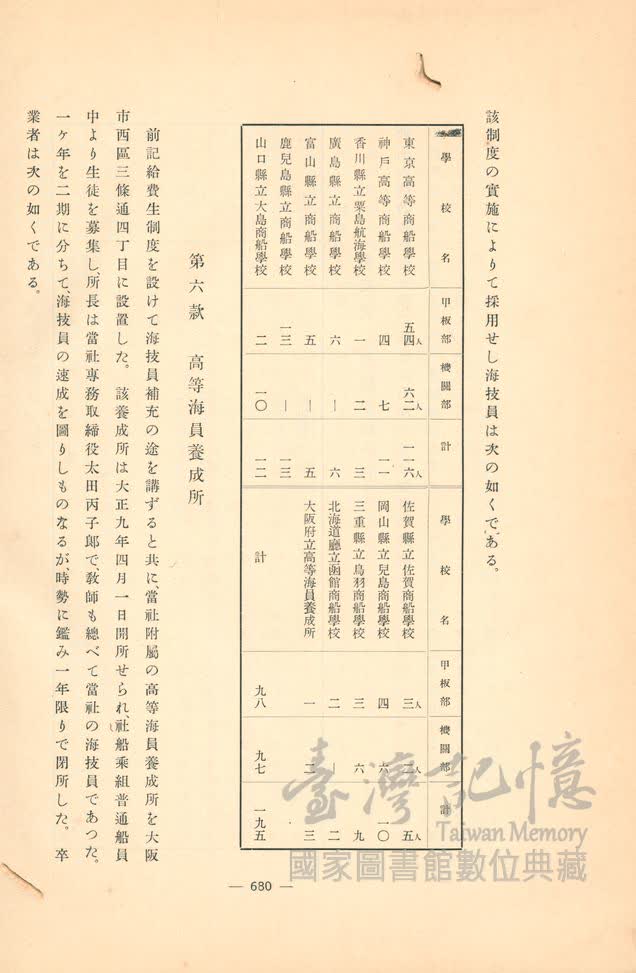 該制度の實施によりて採用せし海技員は次の如くである。
學校名 甲板部 機關部 計
東京高等商船學校 五四人 六二人 一一六人
神戸高等商船學校 四 七 一一
香川縣立粟島航海學校 一 二 三
廣島縣立商船學校 六 ― 六
富山縣立商船學校 五 ― 五
鹿兒島縣立商船學校 一三 ― 一三
山口縣立大島商船學校 二 一〇 一二
學校名 甲板部 機關部 計
佐賀縣立佐賀商船學校 三人 二人 五人
岡山縣立兒島商船學校 四 六 一〇
三重縣立鳥羽商船學校 三 六 九
北海道廳立函館商船學校 二 ― 二
大阪府立高等海員養成所 一 二 三
計 九八 九七 一九五
第六款 高等海員養成所
前記給費生制度を設けて海技員補充の途を講ずると共に、當社附屬の高等海員養成所を大阪
市西區三條通四丁目に設置した。該養成所は大正九年四月一日開所せられ、社船乘組普通船員
中より生徒を募集し、所長は當社專務取締役太田丙子郎で、敎師も總べて當社の海技員であつた。
一ヶ年を二期に分ちて、海技員の速成を圖りしものなるが、時勢に鑑み一年限りで閉所した。卒
業者は次の如くである。
― 680 ―
臺灣記憶
Taiwan Memory
國家圖書館數位典藏